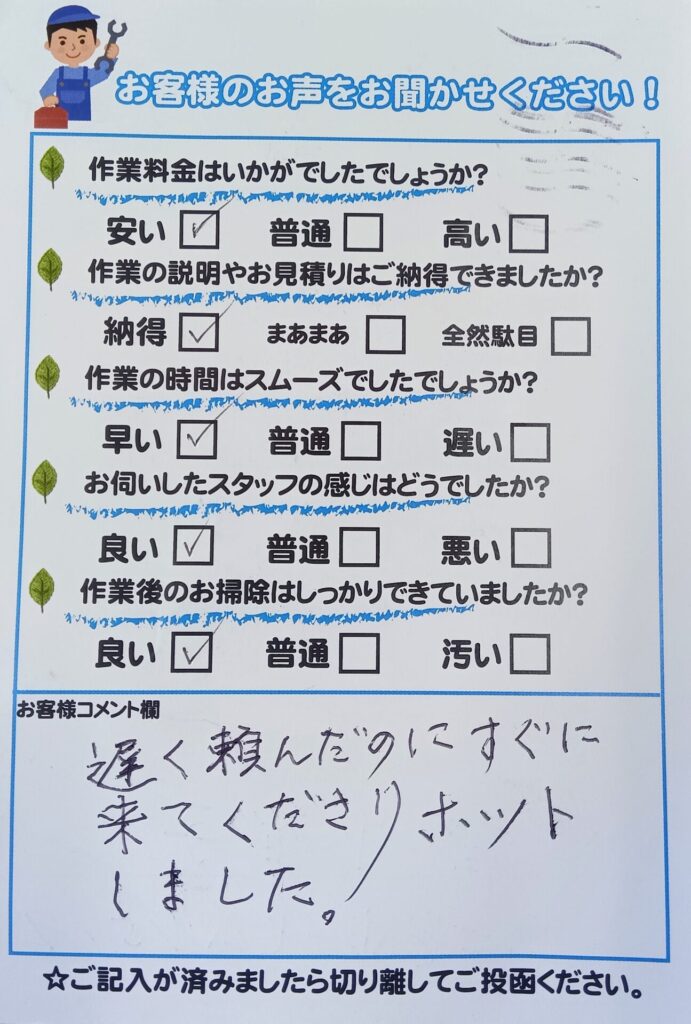 お客様のお声をお聞かせください！
作業料金はいかがでしたでしょうか？
安い 普通 高い
作業の説明やお見積りはご納得できましたか？
納得 まあまあ 全然駄目
作業の時間はスムーズでしたでしょうか？
早い 普通 遅い
お伺いしたスタッフの感じはどうでしたか？
良い 普通 悪い
作業後のお掃除はしっかりできていましたか？
良い 普通 汚い
お客様コメント欄
遅く頼んだのにすぐに
来てくださりホット
しました。
☆ご記入が済みましたら切り離してご投函ください。